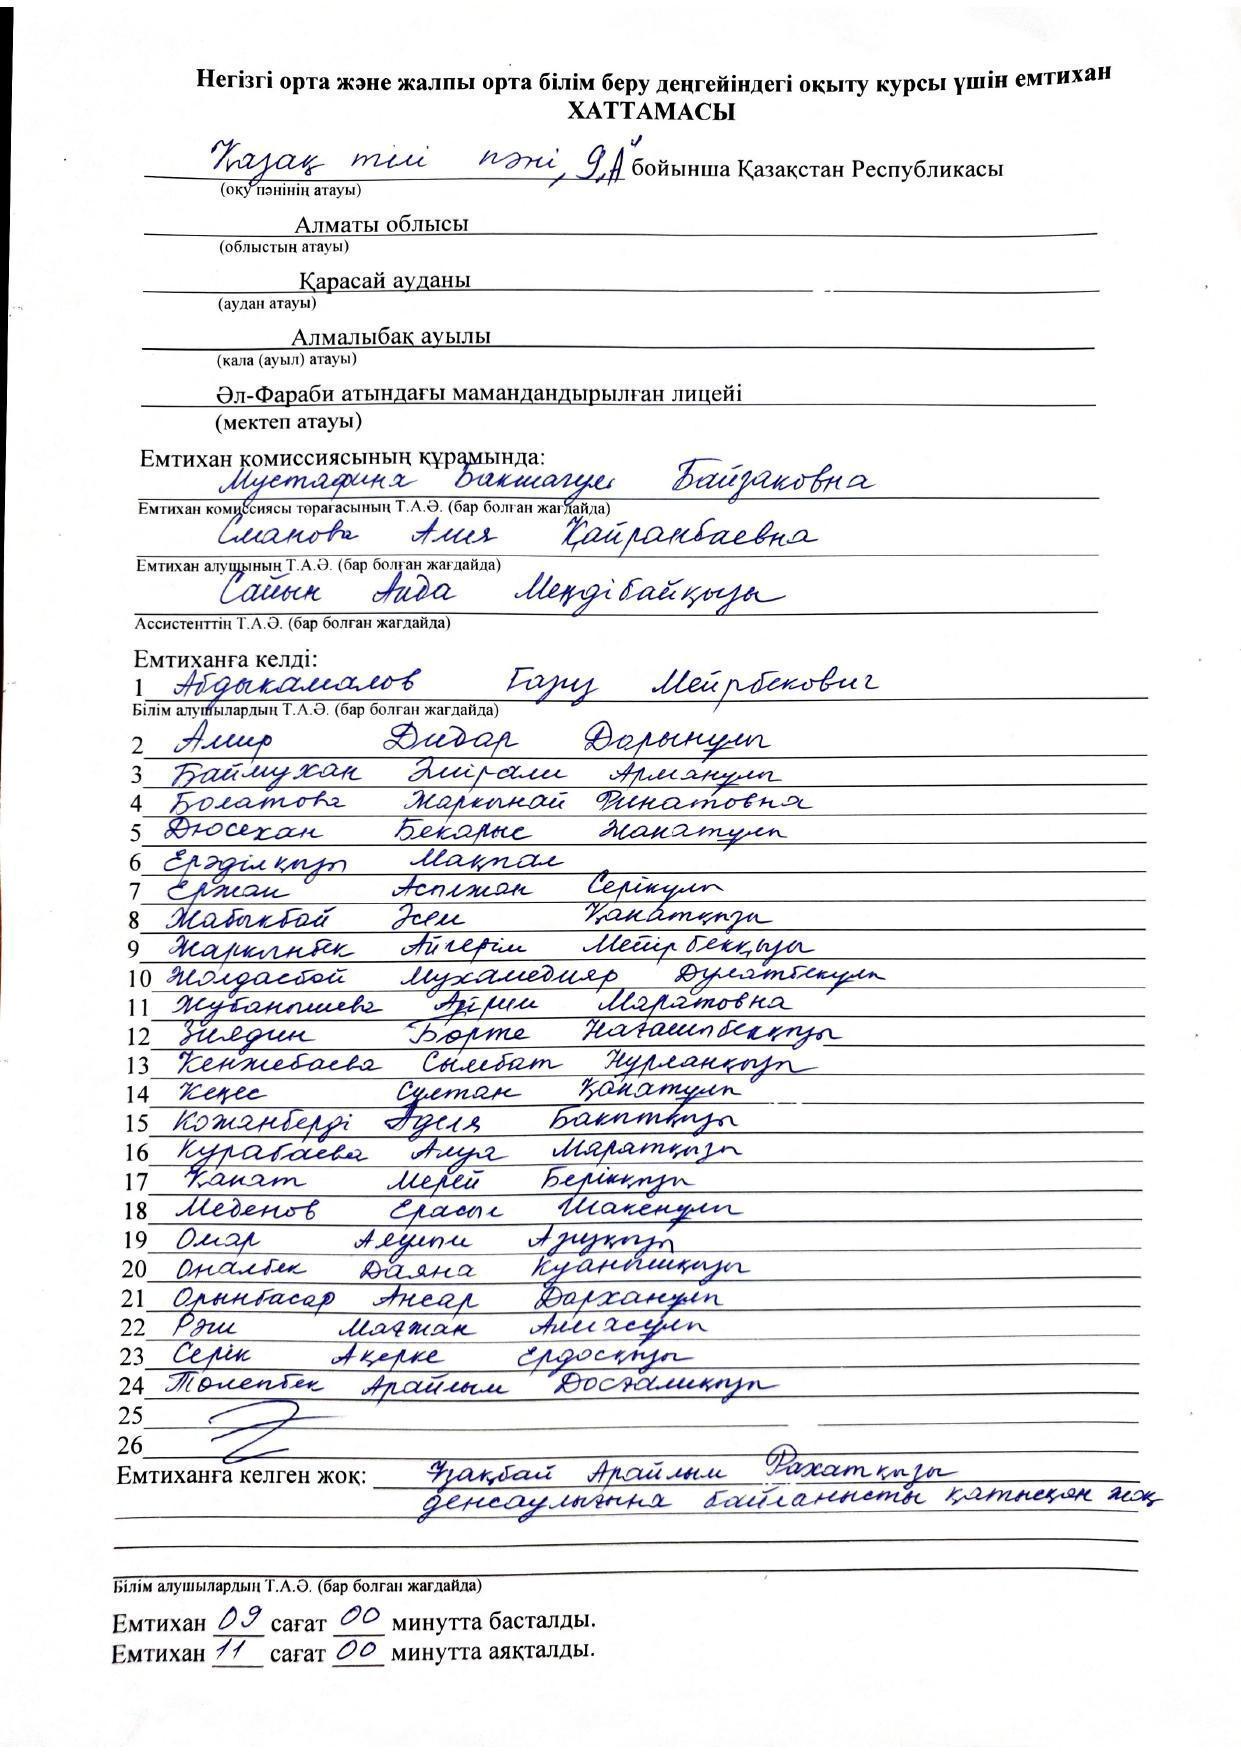 Негізгі орта және жалпы орта білім беру деңгейіндегі оқыту курсы үшін емтихан
ХАТТАМАСЫ
Қазақ тілі пәні, 9 "А" бойынша Қазақстан Республикасы
(оқу пәнінің атауы)
Алматы облысы
(облыстың атауы)
Қарасай ауданы
(аудан атауы)
Алмалыбақ ауылы
(кала (ауыл) атауы)
Әл-Фараби атындағы мамандандырылған лицейі
(мектеп атауы)
Емтихан комиссиясының құрамында:
Мустафина Бакшагул Байзаковна
Емтихан комиссиясы төрағасының Т.А.Ә. (бар болған жағдайда)
Сманова Алия Қайранбаевна
Емтихан алушының Т.А.Ә. (бар болған жағдайда)
Сайын Аида Меңдібайқызы
Ассистенттің Т.А.Ә. (бар болған жағдайда)
Емтиханға келді:
1 Абдыкамалов Газиз Мейрбекович
Білім алушылардың Т.А.Ә. (бар болған жағдайда)
2 Амир Дидар Дарынұлы
3 Баймухан Әмірали Арманұлы
4 Болатова Жаркынай Ринатовна
5 Дюсехан Бекарыс Жанатұлы
6 Ерәділқызы Мақпал
7 Ержан Асп

лжан Серікұлы
8 Жабыкбай Әсем Қанатқызы
9 Жаркынбек Айгерім Мейірбекқызы
10 Жолдасбай Мухамедияр Дулатбекұлы
11 Жубанышева Маратовна
12 Зиядин Бөрте Нағашыбекқызы
13 Кенжебаева Сымбат Нұрланқызы
14 Кеңес Сұлтан Қанатұлы
15 Кожанберді Аделя Бакытқызы
16 Курабаева Алуа Маратқызы
17 Қанат Мерей Берікқызы
18 Меденов Ерасыл Шакенұлы
19 Омар Аяулым Азизқызы
20 Оналбек Даяна Куанышқызы
21 Орынбасар Ансар Дарханұлы
22 Рәш Мағжан Алмасұлы
23 Серік Ақерке Ердосқызы
24 Төлепбек Арайлым Досғалиқызы
25
26
Емтиханға келген жоқ: Ұзақбай Арайлым Рахатқызы
денсаулығына байланысты қатысқан жоқ
Білім алушылардың Т.А.Ә. (бар болған жағдайда)
Емтихан 09 сағат 00 минутта басталды.
Емтихан 11 сағат 00 минутта аяқталды.